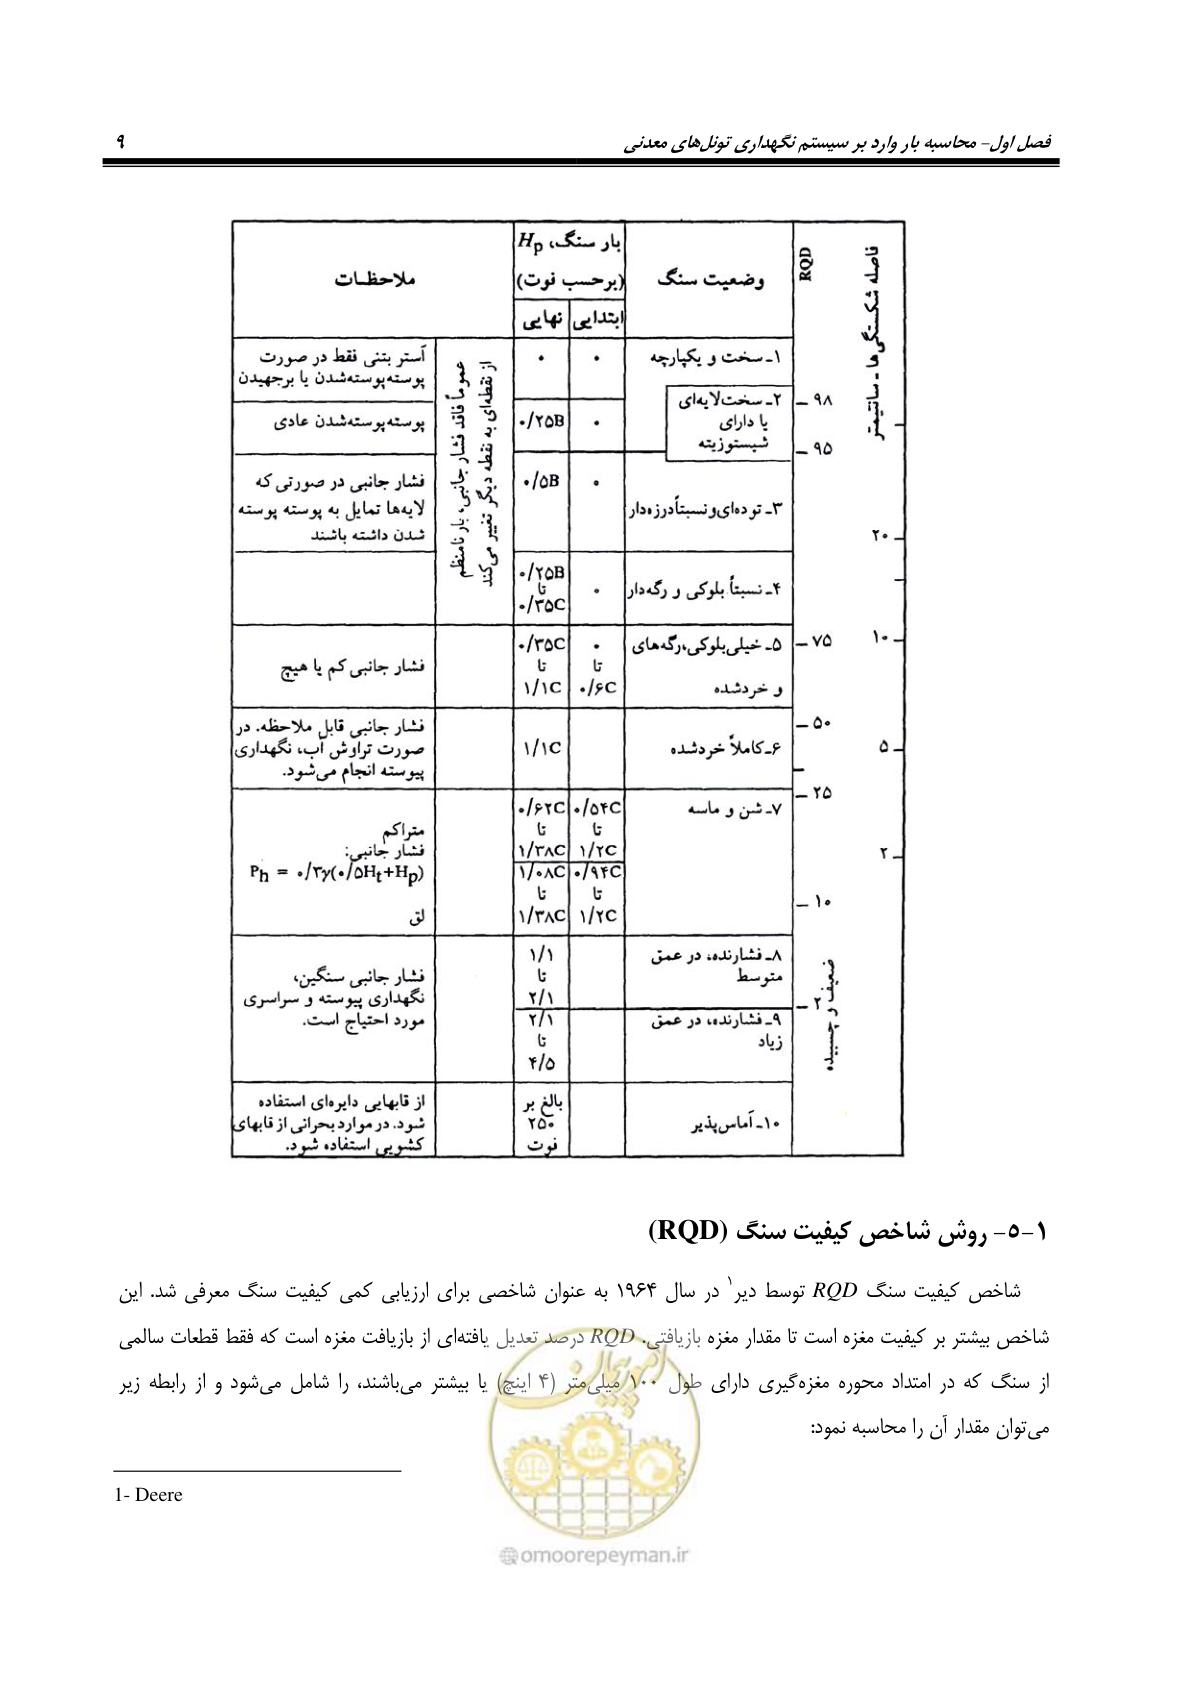 فصل اول- محاسبه بار وارد بر سیستم نگهداری تونل‌های معدنی ۹
فاصله شکستگی‌ها ـ سانتیمتر
RQD
وضعیت سنگ
بار سنگ، Hp
(برحسب فوت)
ابتدایی
نهایی
ملاحظات
۹۸
۹۵
۷۵
۵۰
۲۵
۱۰
۲
۲۰
۱۰
۵
۲
ضعیف و چسبیده
۱ـ سخت و یکپارچه
۰
۰
آستر بتنی فقط در صورت
پوسته‌پوسته‌شدن یا برجهیدن
عموماً فاقد فشار جانبی، بار نامنظم
از نقطه‌ای به نقطه دیگر تغییر می‌کند
۲ـ سخت‌لایه‌ای
یا دارای
شیستوزیته
۰
۰/۲۵B
پوسته‌پوسته‌شدن عادی
۳ـ توده‌ای‌و‌نسبتاً‌درزه‌دار
۰
۰/۵B
فشار جانبی در صورتی که
لایه‌ها تمایل به پوسته پوسته
شدن داشته باشند
۴ـ نسبتاً بلوکی و رگه‌دار
۰
۰/۲۵B
تا
۰/۳۵C
۵ـ خیلی‌بلوکی،رگه‌های
و خردشده
۰
تا
۰/۶C
۰/۳۵C
تا
۱/۱C
فشار جانبی کم یا هیچ
۶ـ کاملاً خردشده
۱/۱C
فشار جانبی قابل ملاحظه. در
صورت تراوش آب، نگهداری
پیوسته انجام می‌شود.
۷ـ شن و ماسه
۰/۵۴C
تا
۱/۲C
۰/۶۲C
تا
۱/۳۸C
متراکم
فشار جانبی:
Ph = ۰/۳γ(۰/۵Ht+Hp)
۰/۹۴C
تا
۱/۲C
۱/۰۸C
تا
۱/۳۸C
لق
۸ـ فشارنده، در عمق
متوسط
۱/۱
تا
۲/۱
فشار جانبی سنگین،
نگهداری پیوسته و سراسری
مورد احتیاج است.
۹ـ فشارنده، در عمق
زیاد
۲/۱
تا
۴/۵
۱۰ـ آماس‌پذیر
بالغ بر
۲۵۰
فوت
از قابهایی دایره‌ای استفاده
شود. در موارد بحرانی از قابهای
کشویی استفاده شود.
۱-۵- روش شاخص کیفیت سنگ (RQD)
شاخص کیفیت سنگ RQD توسط دیر۱ در سال ۱۹۶۴ به عنوان شاخصی برای ارزیابی کمی کیفیت سنگ معرفی شد. این
شاخص بیشتر بر کیفیت مغزه است تا مقدار مغزه بازیافتی. RQD درصد تعدیل یافته‌ای از بازیافت مغزه است که فقط قطعات سالمی
از سنگ که در امتداد محوره مغزه‌گیری دارای طول ۱۰۰ میلی‌متر (۴ اینچ) یا بیشتر می‌باشند، را شامل می‌شود و از رابطه زیر
می‌توان مقدار آن را محاسبه نمود:
1- Deere
امور پیمان
@omoorepeyman.ir